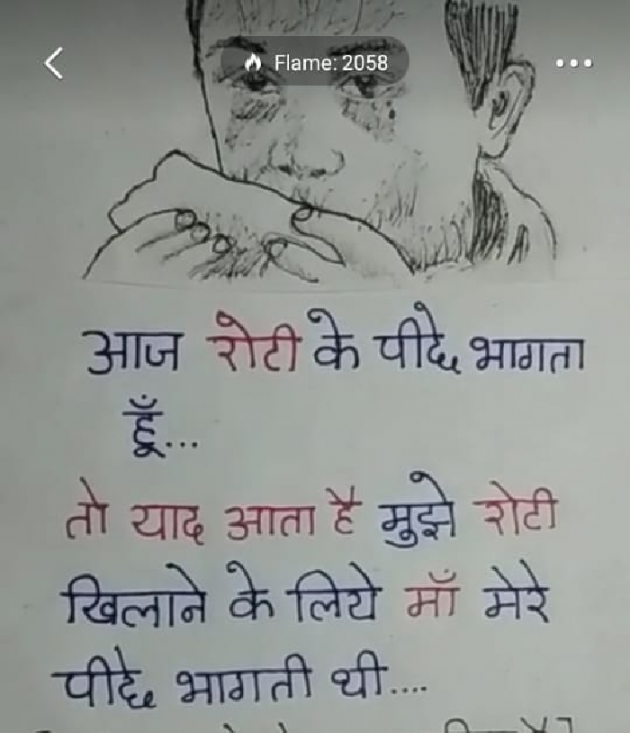 Flame: 2058
आज रोटी के पीछे भागता
हूँ...
तो याद आता है मुझे रोटी
खिलाने के लिये माँ मेरे
पीछे भागती थी....